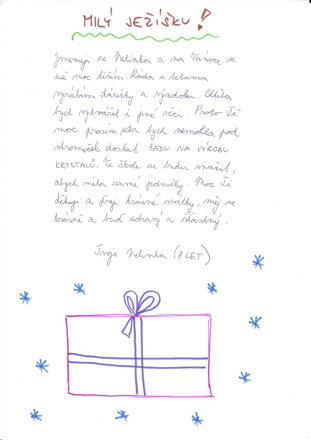 MILÝ JEŽÍŠKU!
Jmenuji se Nelinka a na Vánoce se
už moc těším. Ráda s tetama
vyrábím dárečky a výzdobu. Chtěla
bych vytvářet i jiné věci. Proto Tě
moc prosím zda bych nemohla pod
stromeček dostat SADU NA VÝROBU
KRYSTALŮ. Ve škole se budu snažit,
abych měla samé jedničky. Moc Ti
děkuji a přeji krásné svátky, měj se
krásně a buď zdravý a šťastný.
Tvoje Nelinka (8 LET)